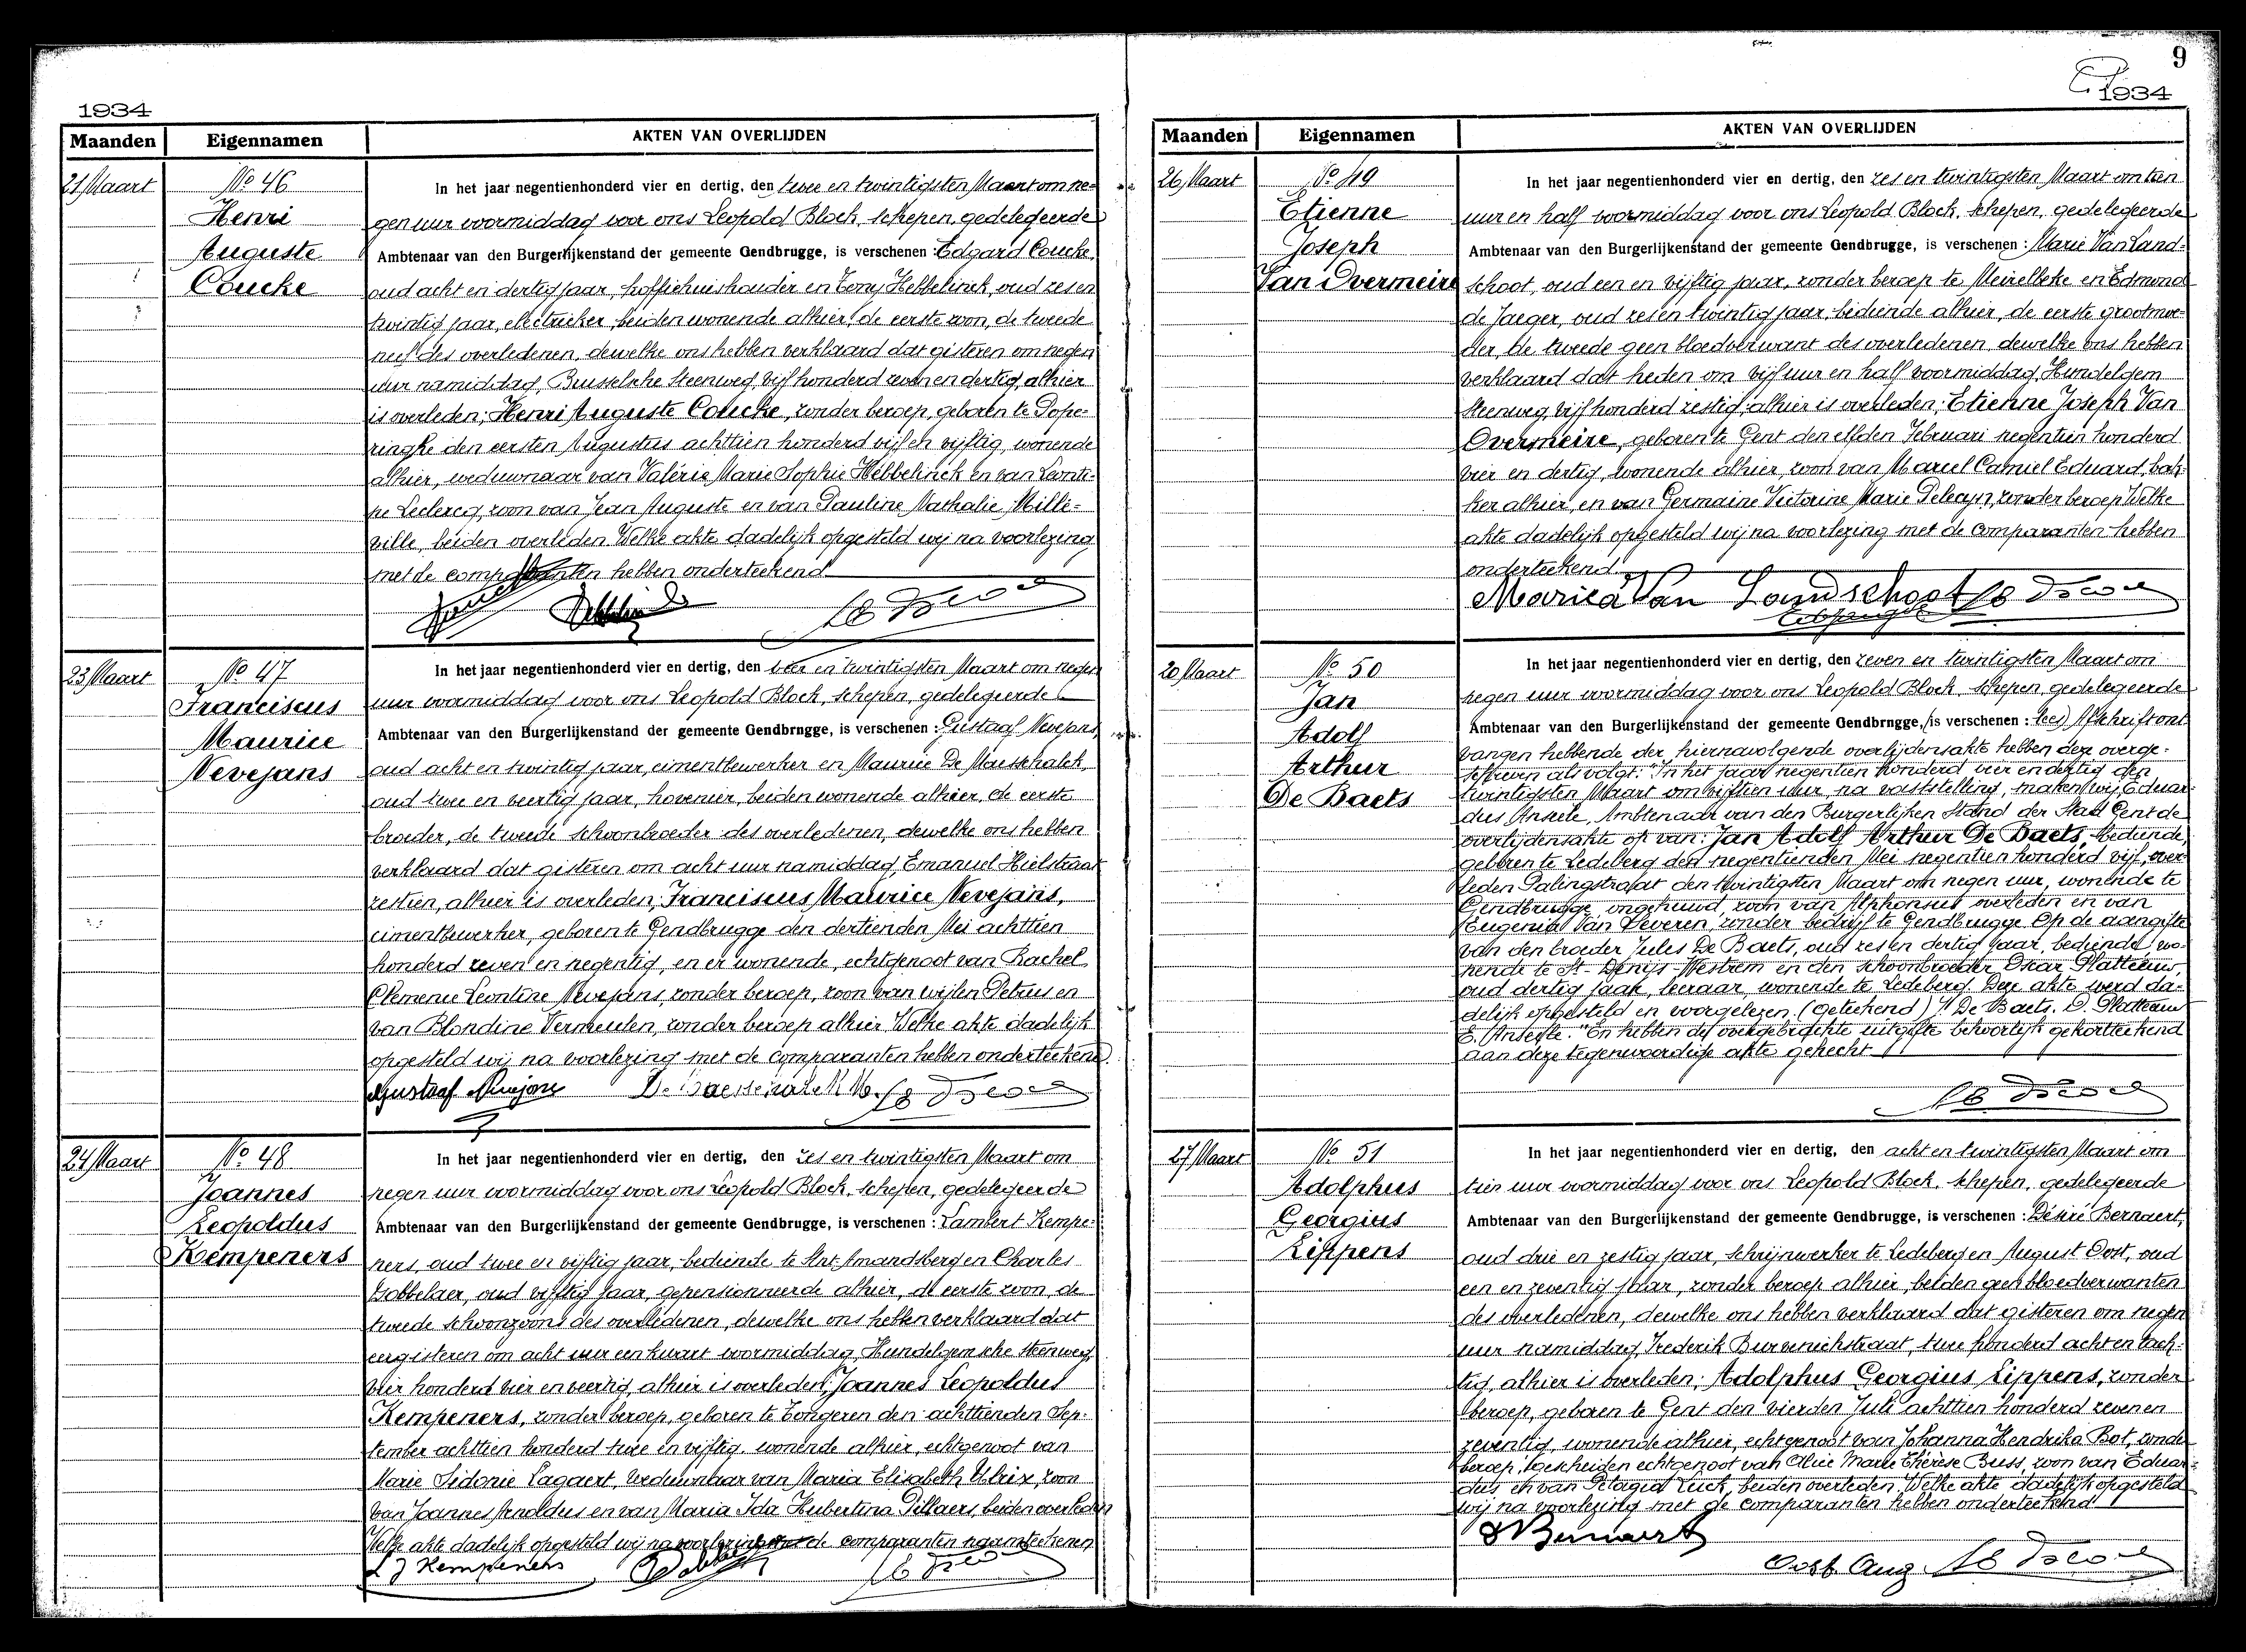 1934
Maanden Eigennamen AKTEN VAN OVERLIJDEN
21 Maart
No 46
Henri
Auguste
Coucke
In het jaar negentienhonderd vier en dertig, den twee en twintigsten Maart om ne-
gen uur voormiddag voor ons Leopold Block, schepen, gedelegeerde
Ambtenaar van den Burgerlijkenstand der gemeente Gendbrugge, is verschenen : Edgard Coucke,
oud acht en dertig jaar, koffiehuishouder en Hebbelinck, oud zes en
twintig jaar, electrieker, beiden wonende alhier, de eerste zoon, de tweede
neef des overledenen, dewelke ons hebben verklaard dat gisteren om negen
uur namiddag, Brusselsche Steenweg, vijf honderd zeven en dertig, alhier
is overleden; Henri Auguste Coucke, zonder beroep, geboren te Pope-
ringhe den eersten Augustus achttien honderd vijf en vijftig, wonende
alhier, weduwnaar van Valérie Marie Sophie Hebbelinck en van Leonti-
ne Leclercq, zoon van Jean Auguste en van Pauline Nathalie Mille-
ville, beiden overleden. Welke akte dadelijk opgesteld wij na voorlezing
met de comparanten hebben onderteekend
23 Maart
No 47
Franciscus
Maurice
Nevejans
In het jaar negentienhonderd vier en dertig, den vier en twintigsten Maart om negen
uur voormiddag voor ons Leopold Block, schepen, gedelegeerde
Ambtenaar van den Burgerlijkenstand der gemeente Gendbrugge, is verschenen : Gustaaf Nevejans,
oud acht en twintig jaar, cimentbewerker en Maurice De Maesschalck,
oud twee en veertig jaar, hovenier, beiden wonende alhier, de eerste
broeder, de tweede schoonbroeder des overledenen, dewelke ons hebben
verklaard dat gisteren om acht uur namiddag, Emanuel Hielstraat
zestien, alhier is overleden; Franciscus Maurice Nevejans,
cimentbewerker, geboren te Gendbrugge den dertienden Mei achttien
honderd zeven en negentig, en er wonende, echtgenoot van Rachel
Clemence Leontine Nevejans, zonder beroep, zoon van wijlen Petrus en
van Blondine Vermeulen, zonder beroep alhier. Welke akte dadelijk
opgesteld wij na voorlezing met de comparanten hebben onderteekend
Gustaaf Nevejans
24 Maart
No 48
Joannes
Leopoldus
Kempeners
In het jaar negentienhonderd vier en dertig, den zes en twintigsten Maart om
negen uur voormiddag voor ons Leopold Block, schepen, gedelegeerde
Ambtenaar van den Burgerlijkenstand der gemeente Gendbrugge, is verschenen : Lambert Kempe-
ners, oud twee en vijftig jaar, bediende te Sint-Amandsberg en Charles
Gobbelaer, oud vijftig jaar, gepensionneerde alhier, de eerste zoon, de
tweede schoonzoon des overledenen, dewelke ons hebben verklaard dat
eergisteren om acht uur een kwart voormiddag, Hundelgemsche Steenweg,
vier honderd vier en veertig, alhier is overleden; Joannes Leopoldus
Kempeners, zonder beroep, geboren te Tongeren den achttienden Sep-
tember achttien honderd twee en vijftig, wonende alhier, echtgenoot van
Marie Sidonie Lagaert, weduwnaar van Maria Elisabeth Ulrix, zoon
van Joannes Arnoldus en van Maria Ida Hubertina Pillaers, beiden overleden
Welke akte dadelijk opgesteld wij na voorlezing met de comparanten naamteekenen
L J Kempeners
9
1934
Maanden Eigennamen AKTEN VAN OVERLIJDEN
26 Maart
No 49
Etienne
Joseph
Van Overmeire
In het jaar negentienhonderd vier en dertig, den zes en twintigsten Maart om tien
uur en half voormiddag voor ons Leopold Block, schepen, gedelegeerde
Ambtenaar van den Burgerlijkenstand der gemeente Gendbrugge, is verschenen : Marie Van Land-
schoot, oud een en vijftig jaar, zonder beroep te Meirelbeke en Edmond
de Jaeger, oud zes en twintig jaar, bediende alhier, de eerste grootmoe-
der, de tweede geen bloedverwant des overledenen, dewelke ons hebben
verklaard dat heden om vijf uur en half voormiddag, Hundelgem
Steenweg, vijf honderd zestig, alhier is overleden; Etienne Joseph Van
Overmeire, geboren te Gent den elfden Februari negentien honderd
vier en dertig, wonende alhier, zoon van Marcel Camiel Eduard, bak-
ker alhier, en van Germaine Victorine Marie Deleyn, zonder beroep. Welke
akte dadelijk opgesteld wij na voorlezing met de comparanten hebben
onderteekend.
Maria Van Landschoot
20 Maart
No 50
Jan
Adolf
Arthur
De Baets
In het jaar negentienhonderd vier en dertig, den zeven en twintigsten Maart om
negen uur voormiddag voor ons Leopold Block, schepen, gedelegeerde
Ambtenaar van den Burgerlijkenstand der gemeente Gendbrugge, (is verschenen : lees) Afschrift ont-
vangen hebbende der hiernavolgende overlijdensakte hebben deze overge-
schreven als volgt: "In het jaar negentien honderd vier en dertig den
twintigsten Maart om vijftien uur, na vaststelling, maken wij, Eduar-
dus Anseele, Ambtenaar van den Burgerlijken Stand der Stad Gent de
overlijdensakte op van: Jan Adolf Arthur De Baets, bediende,
geboren te Ledeberg den negentienden Mei negentien honderd vijf, over-
leden Palingstraat den twintigsten Maart om negen uur, wonende te
Gendbrugge, ongehuwd, zoon van Alphonsus overleden en van
Eugenia Van Leveren, zonder bedrijf te Gendbrugge. Op de aangifte
van den broeder Jules De Baets, oud zes en dertig jaar, bediende, wo-
nende te St-Denijs-Westrem en den schoonbroeder Oscar Platteeuw,
oud dertig jaar, leeraar, wonende te Ledeberg. Deze akte werd da-
delijk opgesteld en voorgelezen. (Geteekend) J. De Baets. O. Platteeuw
E. Anseele." En hebben de overgebrachte uitgifte behoorlijk gekortteekend
aan deze tegenwoordige akte gehecht
27 Maart
No 51
Adolphus
Georgius
Lippens
In het jaar negentienhonderd vier en dertig, den acht en twintigsten Maart om
tien uur voormiddag voor ons Leopold Block, schepen, gedelegeerde
Ambtenaar van den Burgerlijkenstand der gemeente Gendbrugge, is verschenen : Désiré Bernaert,
oud drie en zestig jaar, schrijnwerker te Ledeberg en August Oost, oud
een en zeventig jaar, zonder beroep alhier, beiden geen bloedverwanten
des overledenen, dewelke ons hebben verklaard dat gisteren om negen
uur namiddag, Frederik Burvenichstraat, twee honderd acht en tach-
tig, alhier is overleden; Adolphus Georgius Lippens, zonder
beroep, geboren te Gent den vierden Juli achttien honderd zeven en
zeventig, wonende alhier, echtgenoot van Johanna Hendrika Bot, zonder
beroep, gescheiden echtgenoot van Marie Thérèse Buss, zoon van Eduar-
dus, en van Pelagia Luck, beiden overleden. Welke akte dadelijk opgesteld
wij na voorlezing met de comparanten hebben onderteekend
D Bernaert
Oost Aug